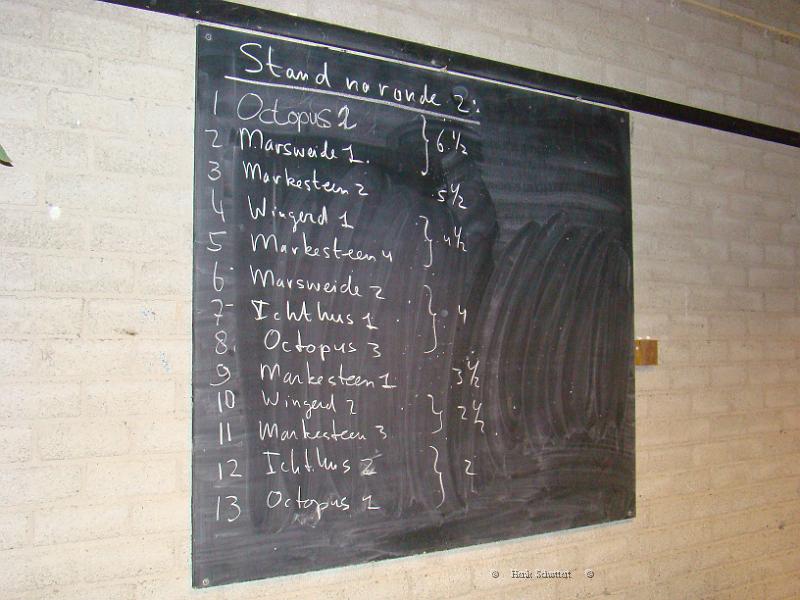 Stand na ronde 2:
1 Octopus 2
2 Marsweide 1. } 6 1/2
3 Markesteen 2 5 1/2
4 Wingerd 1
5 Markesteen 4 } 4 1/2
6 Marsweide 2
7 Ichthus 1 } 4
8. Octopus 3
9 Markesteen 1 3 1/2
10 Wingerd 2
11 Markesteen 3 } 2 1/2
12 Ichthus 2
13 Octopus 1 } 2
© Henk Schottert ©